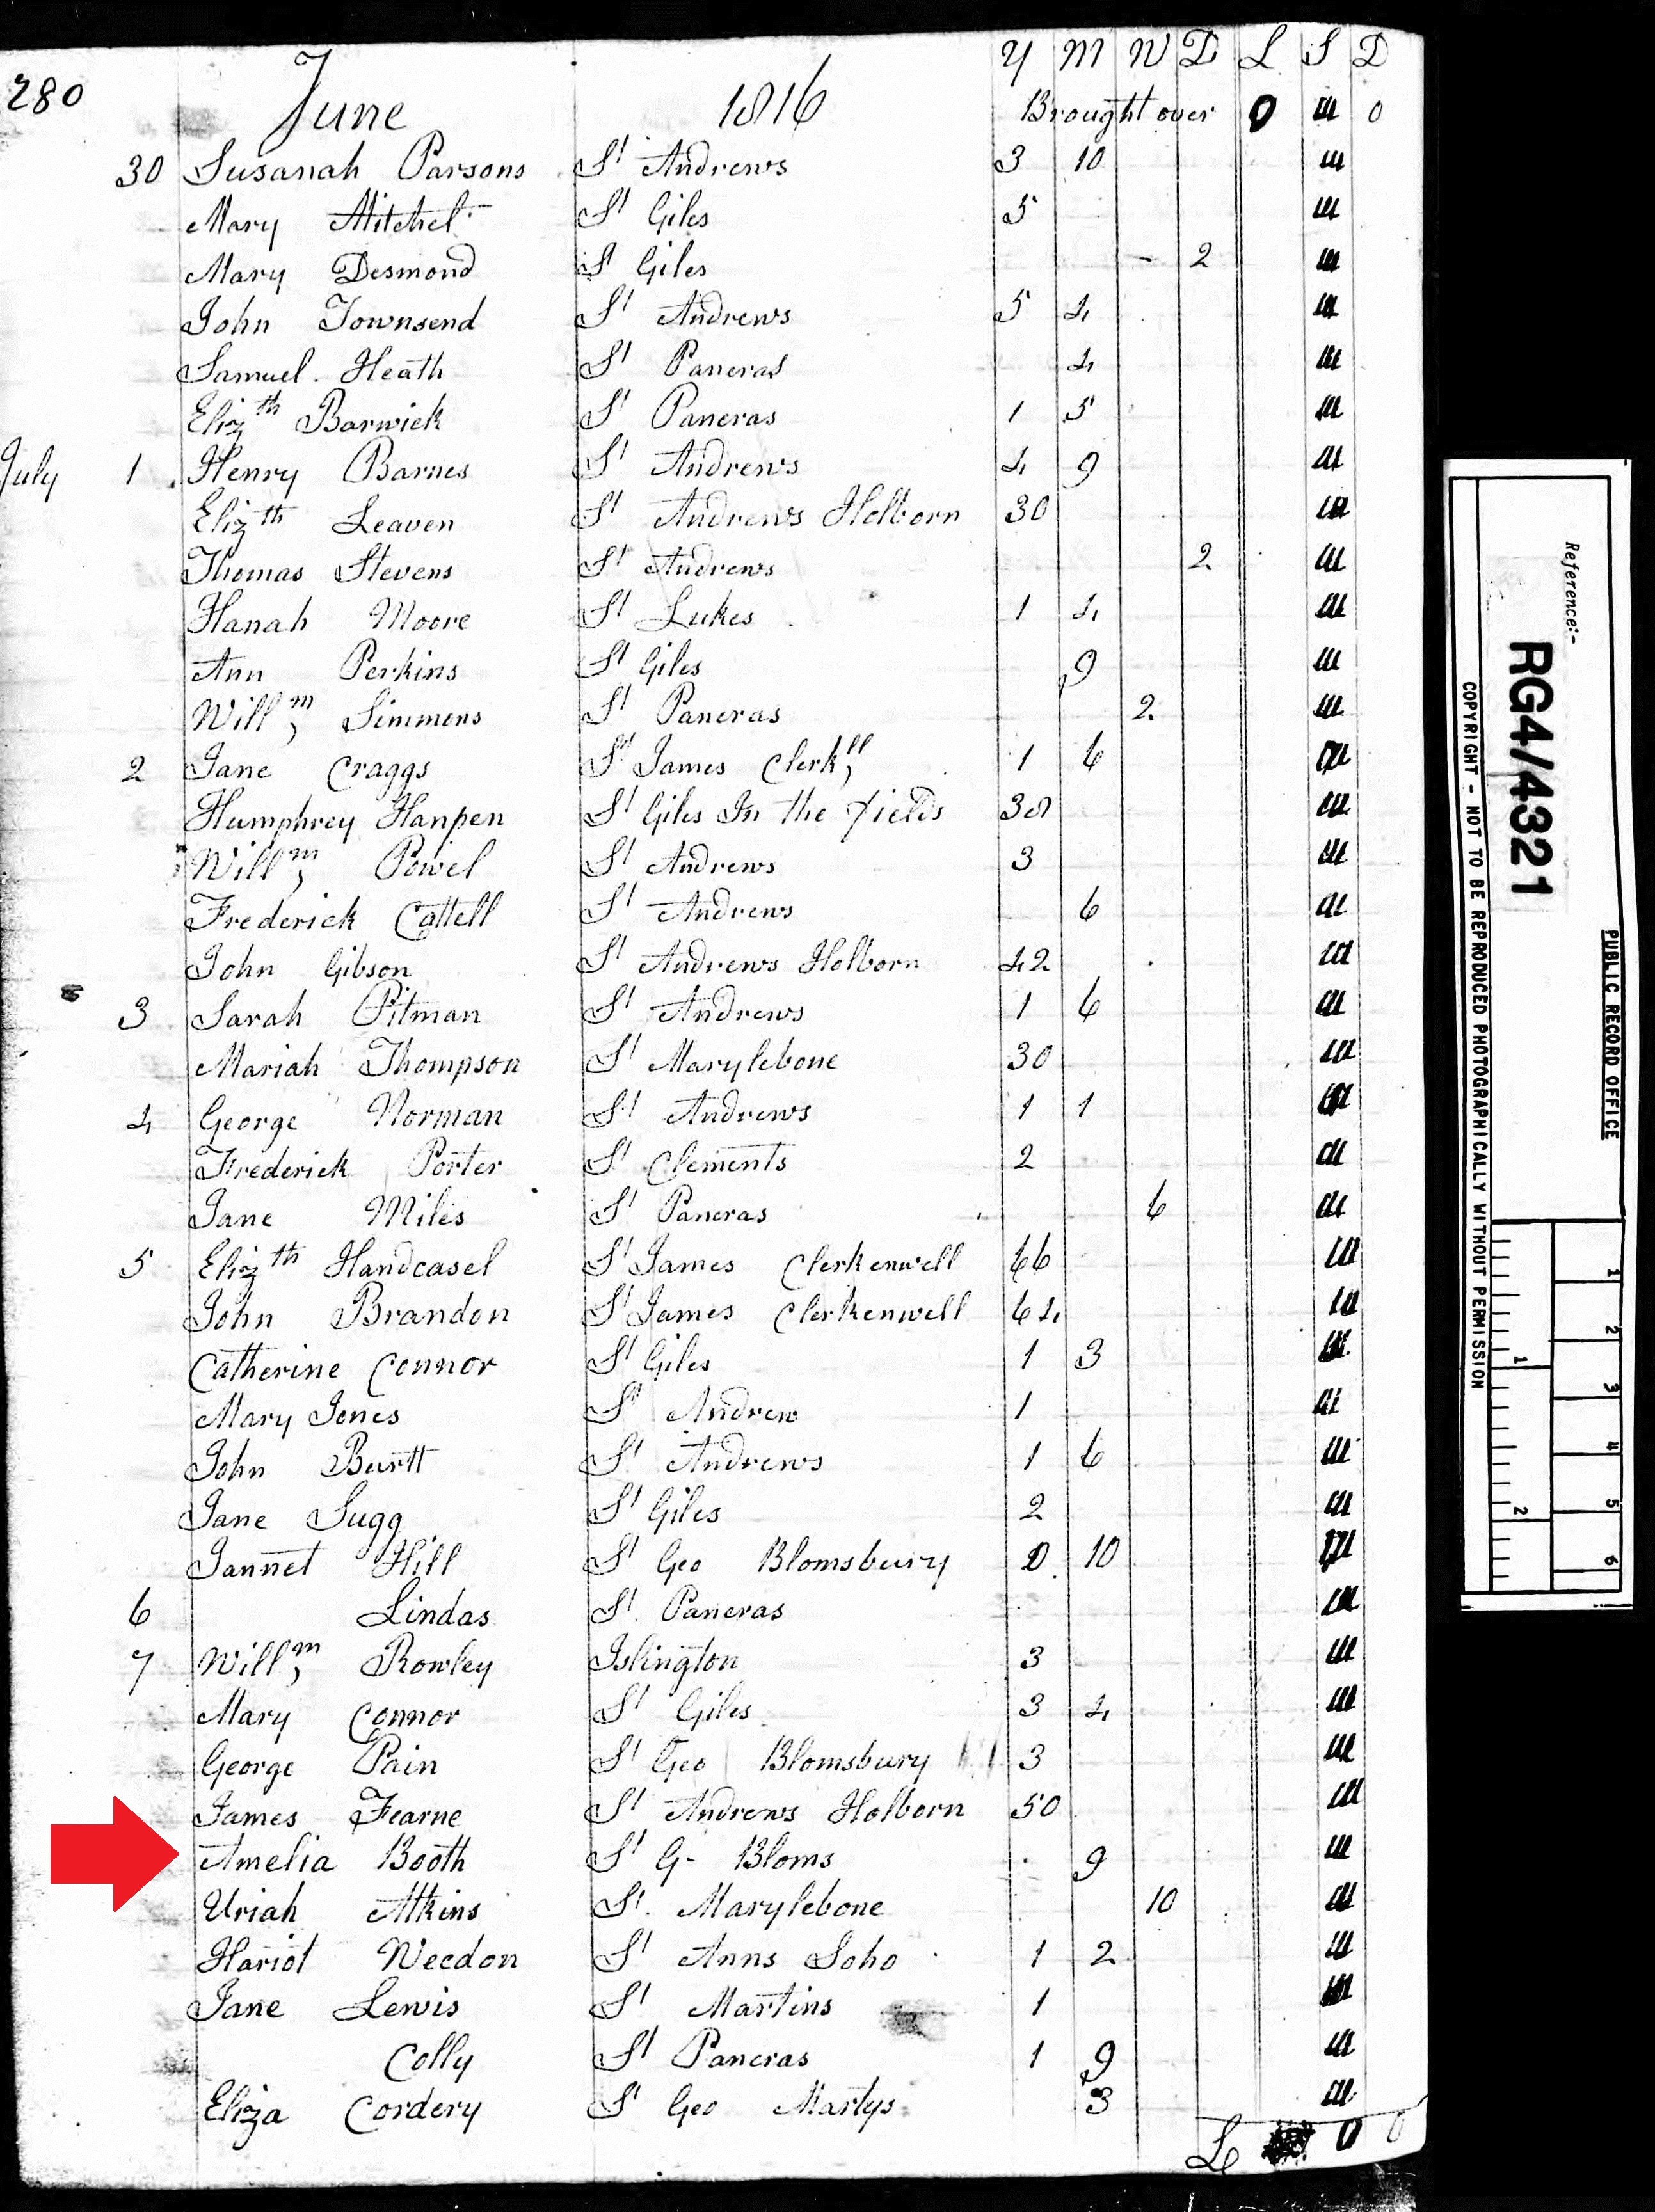 Y M W D L S D
280 June 1816 Brought over 0 0
30 Susanah Parsons St Andrews 3 10
Mary Mitchel St Giles 5
Mary Desmond St Giles 2
John Townsend St Andrews 5 4
Samuel Heath St Pancras 4
Elizth Barwick St Pancras 1 5
July 1 Henry Barnes St Andrews 4 9
Elizth Leaven St Andrews Holborn 30
Thomas Stevens St Andrews 2
Hanah Moore St Lukes 1 4
Ann Perkins St Giles 9
Willm Simmons St Pancras 2
2 Jane Craggs St James Clerkll 1 6
Humphrey Hanpen St Giles In the Fields
Willm Powel St Andrews 3
Frederick Cattell St Andrews 6
John Gibson St Andrews Holborn 42
3 Sarah Pitman St Andrews 1 6
Mariah Thompson St Marylebone 30
4 George Norman St Andrews 1 1
Frederick Porter St Clements 2
Jane Miles St Pancras 6
5 Elizth Handcasel St James Clerkenwell 66
John Brandon St James Clerkenwell 64
Catherine Connor St Giles 1 3
Mary Jones St Andrew 1
John Burtt St Andrews 1 6
Jane Sugg St Giles 2
Jannet Hill St Geo Blomsbury 10
6 Lindas St Pancras
7 Willm Rowley Islington 3
Mary Connor St Giles 3 4
George Pain St Geo Blomsbury 3
James Fearne St Andrews Holborn 50
Amelia Booth St G- Bloms 9
Uriah Atkins St Marylebone 10
Hariot Weedon St Anns Soho 1 2
Jane Lewis St Martins 1
Colly St Pancras 1 9
Eliza Cordery St Geo Martys 3
L 0 0
PUBLIC RECORD OFFICE
1 2 3 4 5 6
Reference:-
RG4/4321
1 2
COPYRIGHT - NOT TO BE REPRODUCED PHOTOGRAPHICALLY WITHOUT PERMISSION